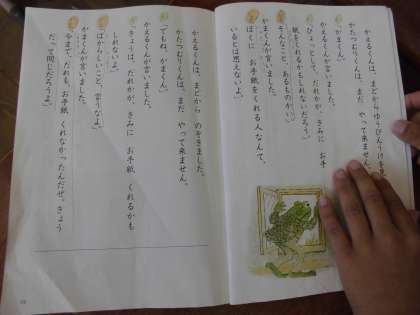 かえるくんは、まどからゆうびんうけを見
かたつむりくんは、まだ やって来ません。
「がまくん。」
「ひょっとして、だれかが、きみに お手
紙をくれるかもしれないだろう。」
「そんなこと、あるものかい。」
がまくんが言いました。
「ぼくに お手紙をくれる人なんて、
いるとは思えないよ。」
かえるくんは、まどから のぞきました。
かたつむりくんは、まだ やって来ません。
「でもね、がまくん。」
かえるくんが言いました。
「きょうは、だれかが、きみに お手紙 くれるかも
しれないよ。」
「ばからしいこと、言うなよ。」
がまくんが言いました。
「今まで、だれも、お手紙 くれなかったんだぜ。きょう
だって同じだろうよ。」